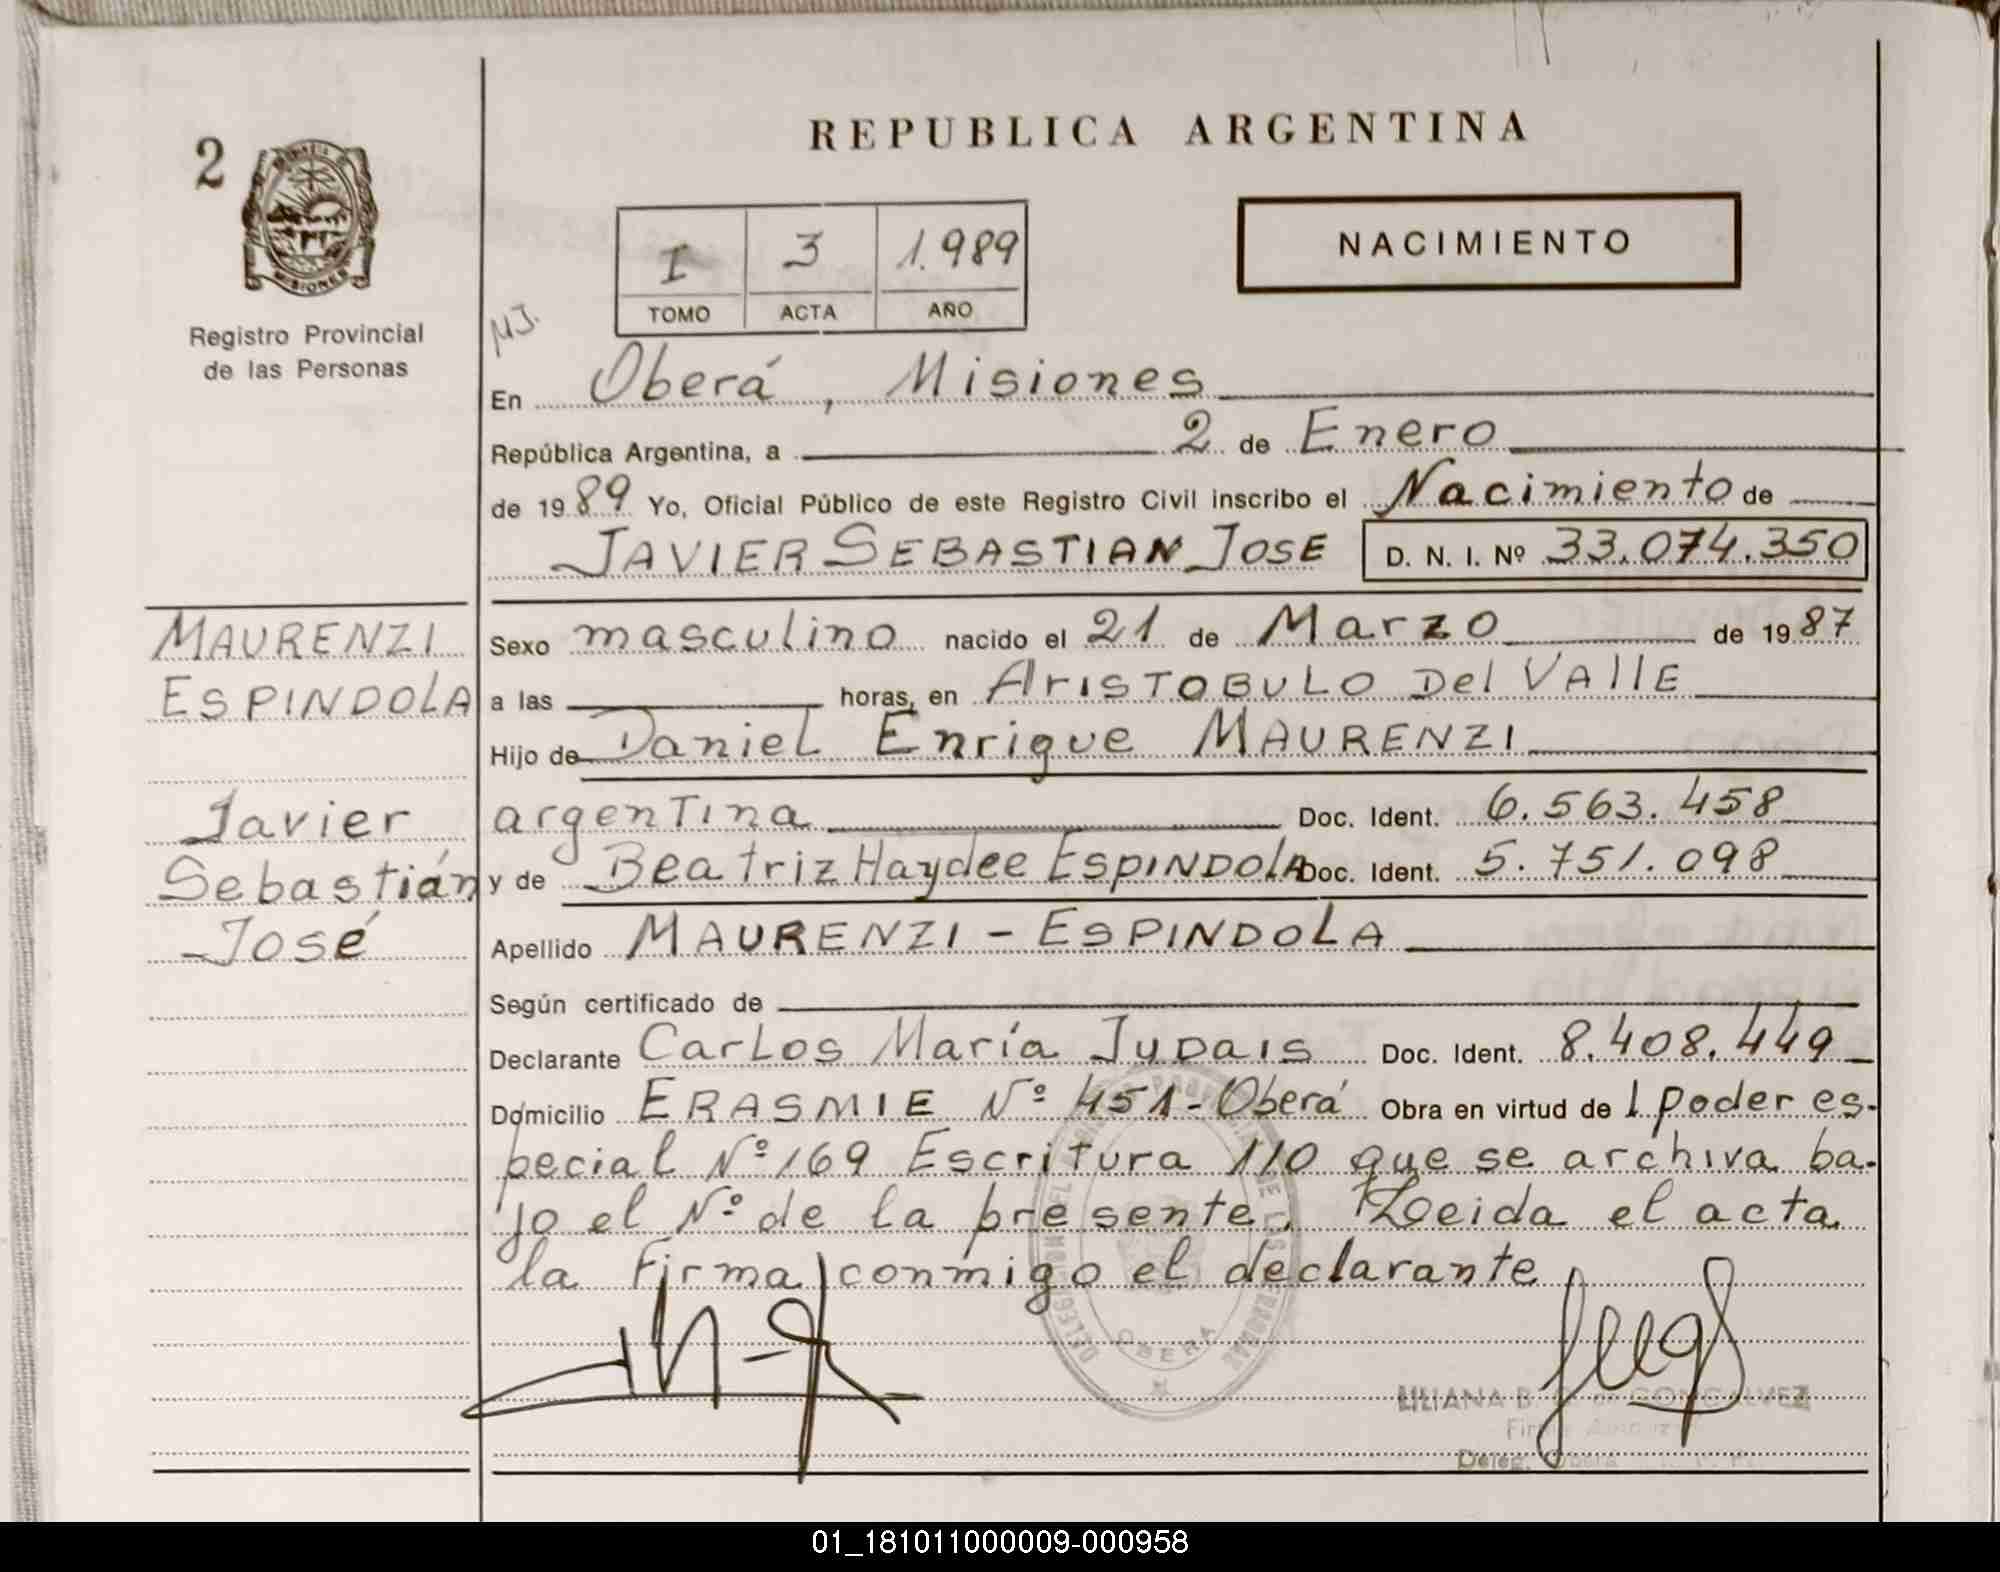 2
Registro Provincial
de las Personas
REPUBLICA ARGENTINA
I 3 1.989
TOMO ACTA AÑO
NACIMIENTO
MJ.
En Oberá, Misiones
República Argentina, a 2 de Enero
de 1989 Yo, Oficial Público de este Registro Civil inscribo el Nacimiento de
JAVIER SEBASTIAN JOSE D. N. I. Nº 33.074.350
MAURENZI
ESPINDOLA
Javier
Sebastián
José
Sexo masculino nacido el 21 de Marzo de 1987
a las horas, en ARISTOBULO Del VAllE
Hijo de Daniel Enrique MAURENZI
argentina Doc. Ident. 6.563.458
y de Beatriz Haydee ESPINDOLA Doc. Ident. 5.751.098
Apellido MAURENZI - ESPINDOLA
Según certificado de
Declarante Carlos María Judais Doc. Ident. 8.408.449
Domicilio ERASMIE Nº 451 - Oberá Obra en virtud de 1 poder es-
pecial Nº 169 Escritura 110 que se archiva ba-
jo el Nº de la presente. Leida el acta
la firma conmigo el declarante
OBERA
LILIANA B. GONCALVEZ
01_181011000009-000958